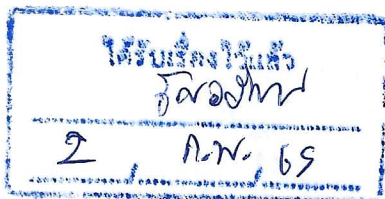 ได้รับเรื่องไว้แล้ว
2 ก.พ. 69